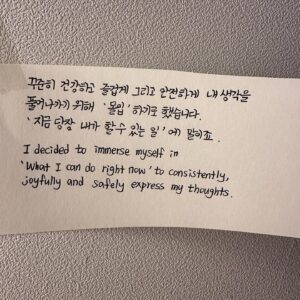 꾸준히 건강하고 즐겁게 그리고 안전하게 내 생각을
풀어나가기 위해 '몰입' 하기로 했습니다.
'지금 당장 내가 할 수 있는 일' 에 말이죠.
I decided to immerse myself in
'What I can do right now' to consistently,
joyfully and safely express my thoughts.